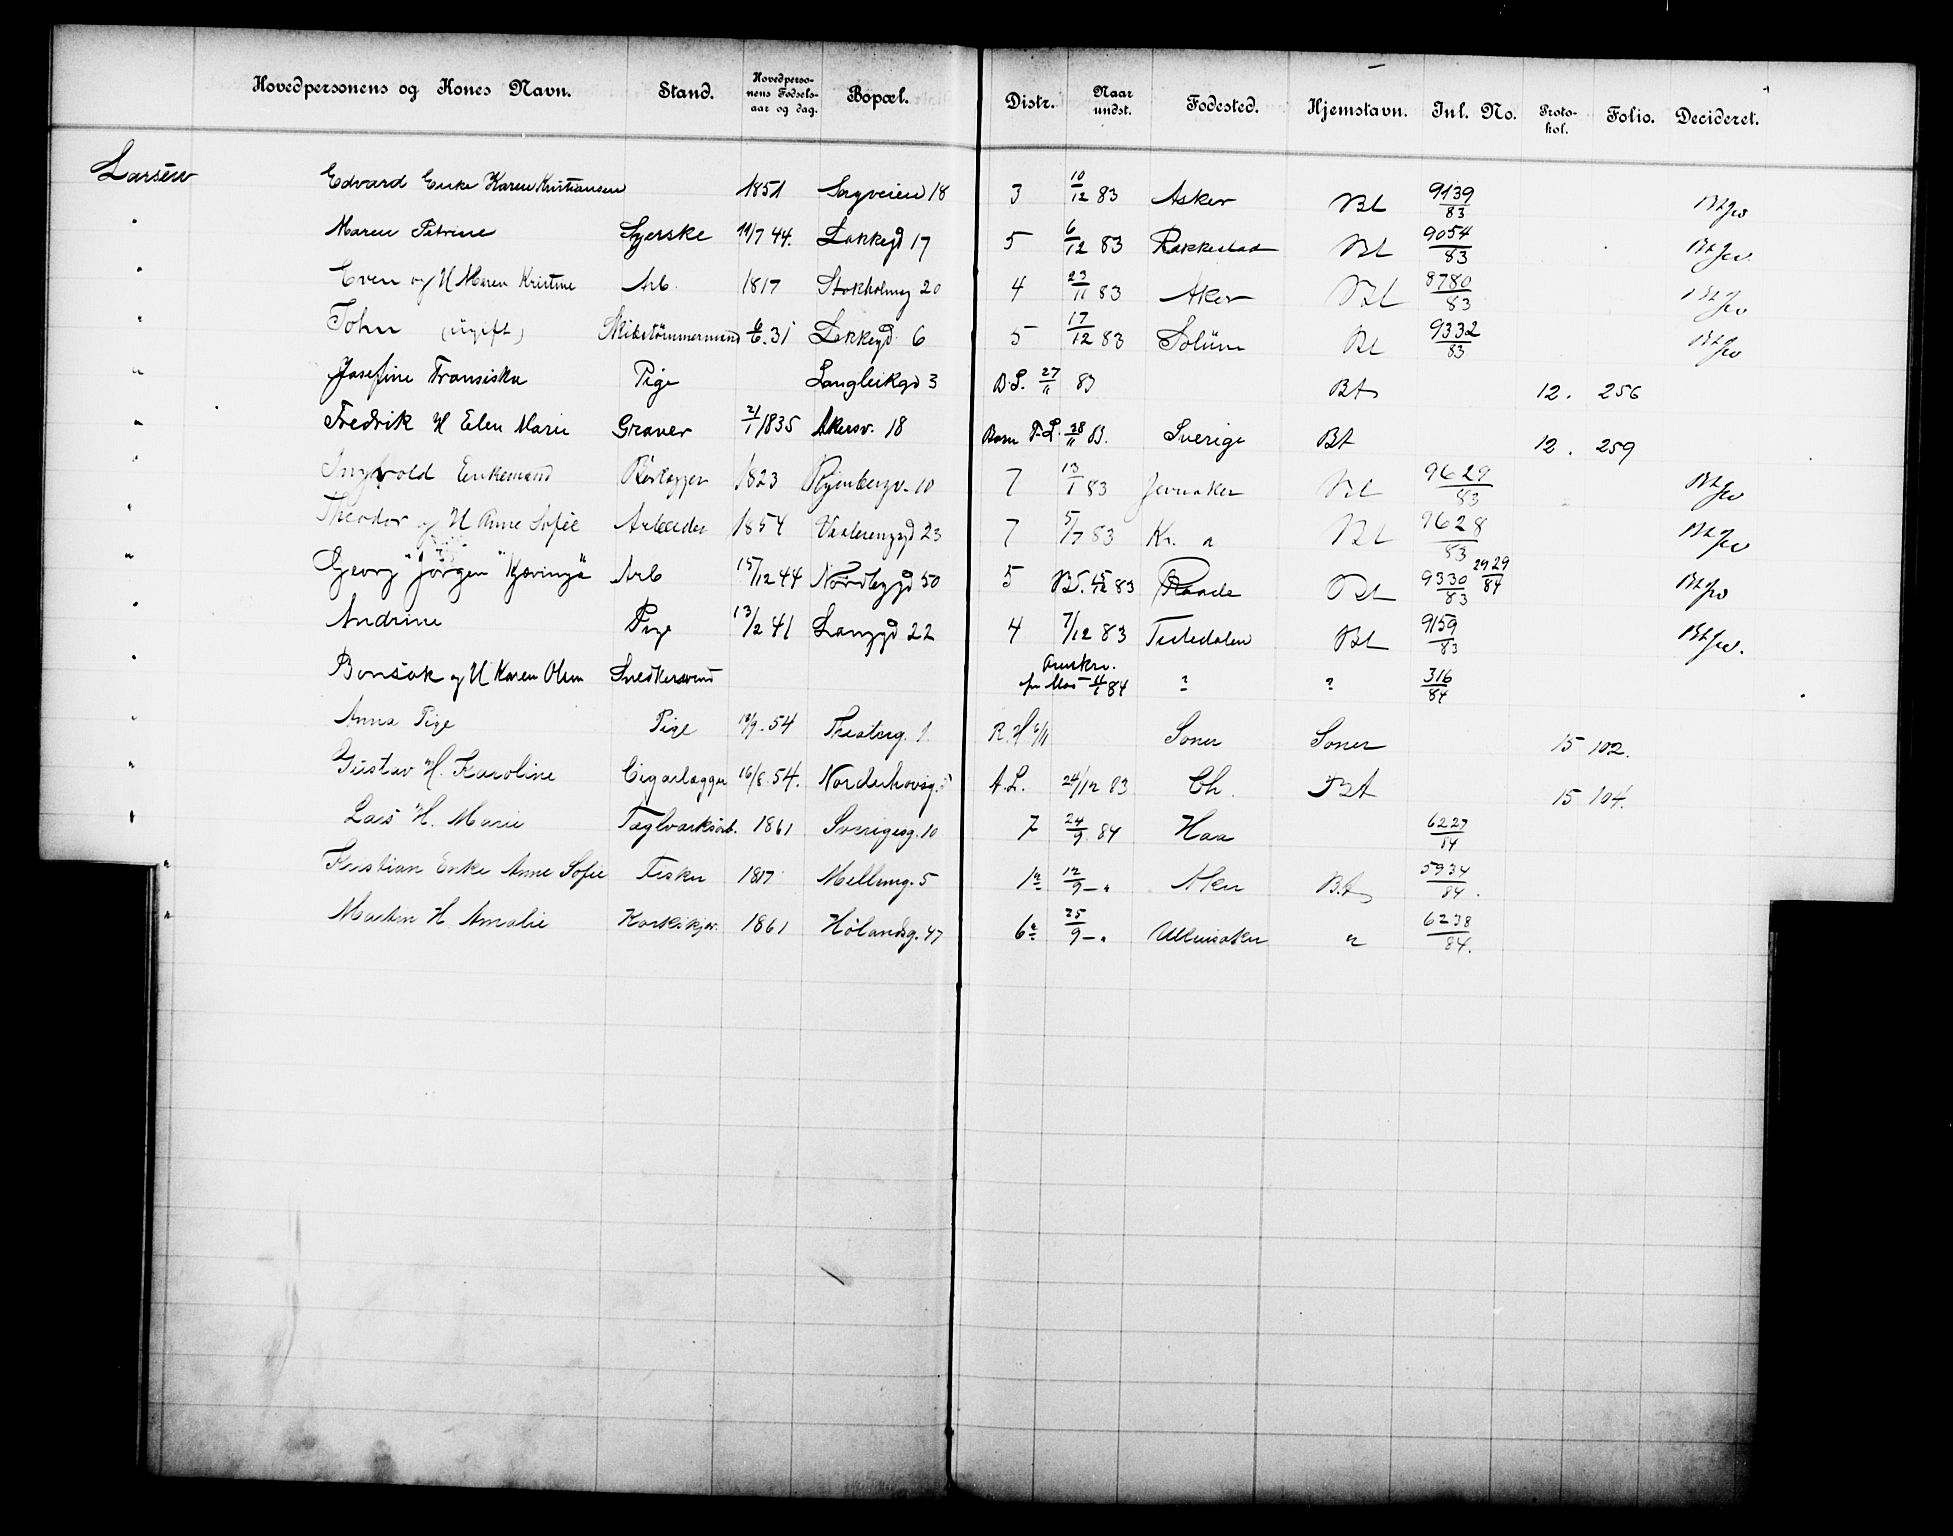 Hovedpersonens og Kones Navn. Stand. Hovedpersonens Fødselsaar og dag. Bopæl. Distr. Naar undst. Fødested. Hjemstavn. Inl. No. Protokol. Folio. Decideret.
Larsen Edvard Enke Karen Kristiansen 1851 Sagveien 18 3 10/12 83 Asker Bt 9139/83
" Maren Petrine Syerske 11/7 44. Løkkegd 17 5 6/12 83 Rakkestad Bt 9054/83
" Even og H Maren Kristine Arb. 1817 Stokholmg 20 4 23/11 83 Aker Bt 8780/83
" John (ugift) Skibstømmermand 31 Løkkegd 6 5 17/12 83 Solum Bt 9332/83
" Josefine Fransiska Pige Langleikgd 3 B.L. 27/11 83 Bt 12. 256
" Fredrik H Elen Marie Graver 21/1 1835 Akersv. 18 28/11 Sverige Bt 12. 259
" Enkemand 1823 10 7 13/1 83 Jevnaker Bt 9629/83
" Theodor og H Anne Sofie Arbeider 1854 Vaalerenggd 23 7 5/7 83 Kr. a Bt 9628/83
" Georg "Jørgen" Arb 15/12 44 Nordbygd 50 5 15/12 83 Raade Bt 9330/83 2929/84
" Andrine Pige 13/2 41 Langgd 22 4 7/12 83 Tistedalen Bt 9159/83
" Bonsak og H Karen Olsen Snedkersvend 84 ? ? 316/84
" Anna Pige Pige 54 Theaterg. 1 R.H Soner Soner 15 102.
" Gustav H. Karoline Cigarlægger 16/8.54. Norderhovsg. A.L. 24/12 83 Ch. Bt 15 104.
" Lars H. Marie Teglværksarb. 1861 Sverigesg. 10 7 24/9 84 Haa 6227/84
" Kristian Enke Anne Sofie Fisker 1817 Mellumg. 5 1 12/9 – " Aker Bt 5934/84.
" Martin H Amalie 1861 Hølandsg. 47 6 25/9 – " Ullensaker " 6238/84.